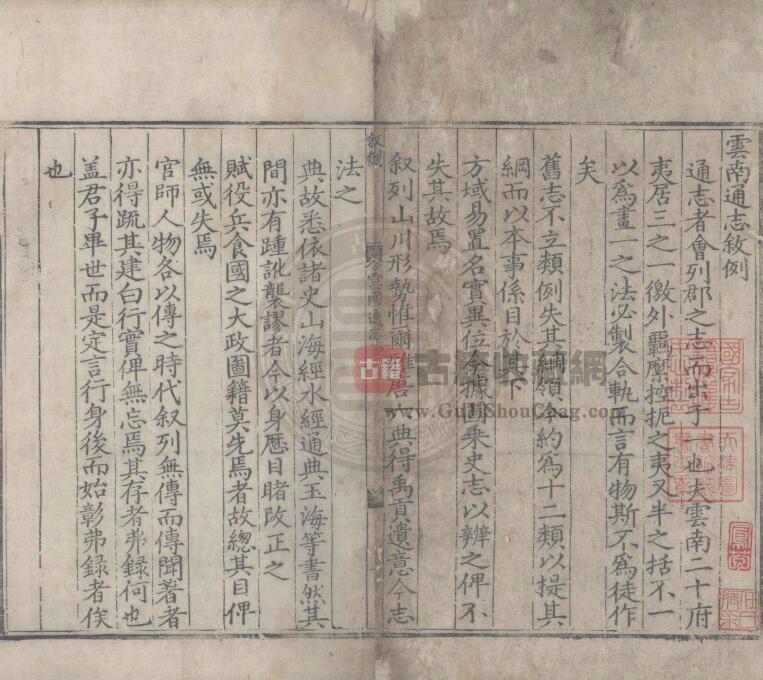 雲南通志敘例
通志者會列郡之志而出于一也夫雲南二十府
夷居三之一徼外羈縻控扼之夷又半之括不一
以爲畫一之法必製合軌而言有物斯不爲徒作
矣
舊志不立類例失其綱領今約爲十二類以提其
綱而以本事係目於其下
方域易置名實異位今據圖乗史志以辨之俾不
失其故焉
叙列山川形勢惟爾雅唐六典得禹貢遺意今志
叙例
雲南通志
法之
典故悉依諸史山海經水經通典玉海等書然其
間亦有踵訛襲謬者今以身歷目睹改正之
賦役兵食國之大政圖籍莫先焉者故總其目俾
無或失焉
官師人物各以傳之時代叙列無傳而傳聞著者
亦得疏其建白行實俾無忘焉其存者弗録何也
盖君子畢世而是定言行身後而始彰弗録者俟
也
古籍
古籍收藏網
www.GuJiShouCang.com